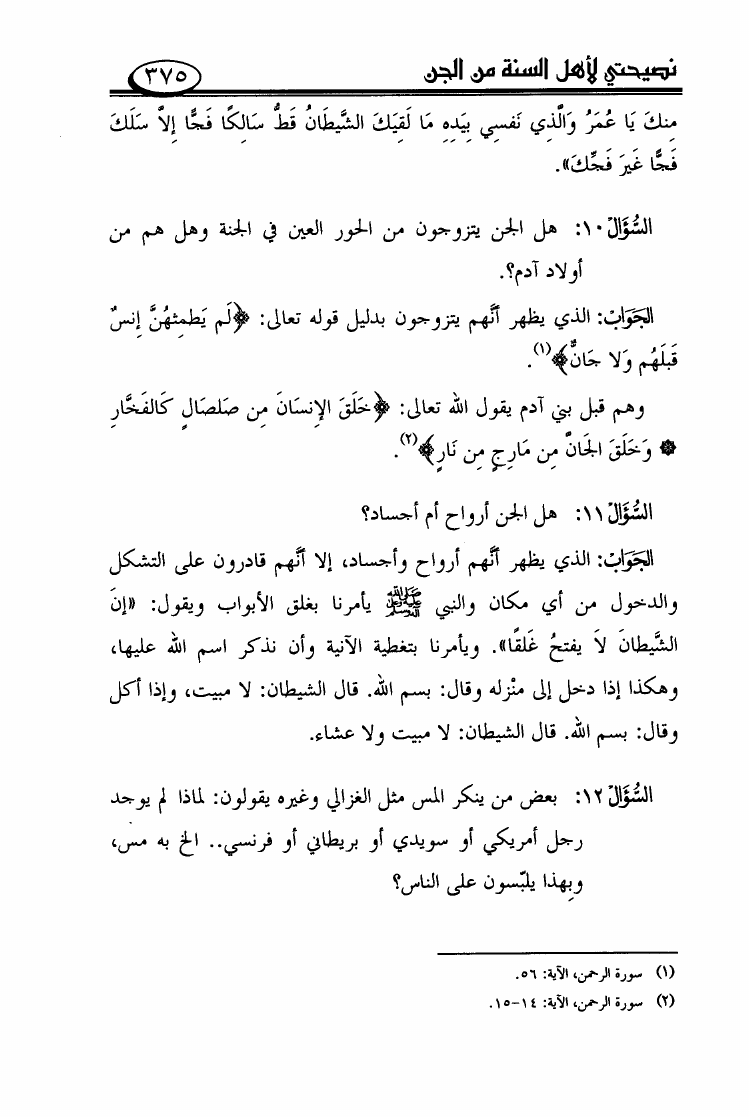 نصيحتي لأهل السنة من الجن
٣٧٥
مِنكَ يَا عُمَرُ وَالَّذِي نَفسِي بِيَدِهِ مَا لَقِيَكَ الشَّيطَانُ قَطُّ سَالِكًا فَجًّا إِلاَّ سَلَكَ
فَجًّا غَيرَ فَجِّكَ».
السُّؤَالُ ١٠: هل الجن يتزوجون من الحور العين في الجنة وهل هم من
أولاد آدم؟.
الجَوَابُ: الذي يظهر أنَّهم يتزوجون بدليل قوله تعالى: ﴿لَم يَطمِثهُنَّ إِنسٌ
قَبلَهُم وَلا جَانٌّ﴾(١).
وهم قبل بني آدم يقول الله تعالى: ﴿خَلَقَ الإِنسَانَ مِن صَلصَالٍ كَالفَخَّارِ
۞ وَخَلَقَ الجَانَّ مِن مَارِجٍ مِن نَارٍ﴾(٢).
السُّؤَالُ ١١: هل الجن أرواح أم أجساد؟
الجَوَابُ: الذي يظهر أنَّهم أرواح وأجساد، إلا أنَّهم قادرون على التشكل
والدخول من أي مكان والنبي ﷺ يأمرنا بغلق الأبواب ويقول: «إنَّ
الشَّيطَانَ لاَ يفتحُ غَلقًا». ويأمرنا بتغطية الآنية وأن نذكر اسم الله عليها،
وهكذا إذا دخل إلى منْزله وقال: بسم الله. قال الشيطان: لا مبيت، وإذا أكل
وقال: بسم الله. قال الشيطان: لا مبيت ولا عشاء.
السُّؤَالُ ١٢: بعض من ينكر المس مثل الغزالي وغيره يقولون: لماذا لم يوجد
رجل أمريكي أو سويدي أو بريطاني أو فرنسي.. الخ به مس،
وبِهذا يلبّسون على الناس؟
(١) سورة الرحمن، الآية: ٥٦.
(٢) سورة الرحمن، الآية: ١٤-١٥.